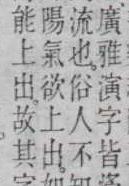 廣雅演字皆
流也。俗人不知
陽氣欲上出。如
能上出。故其字